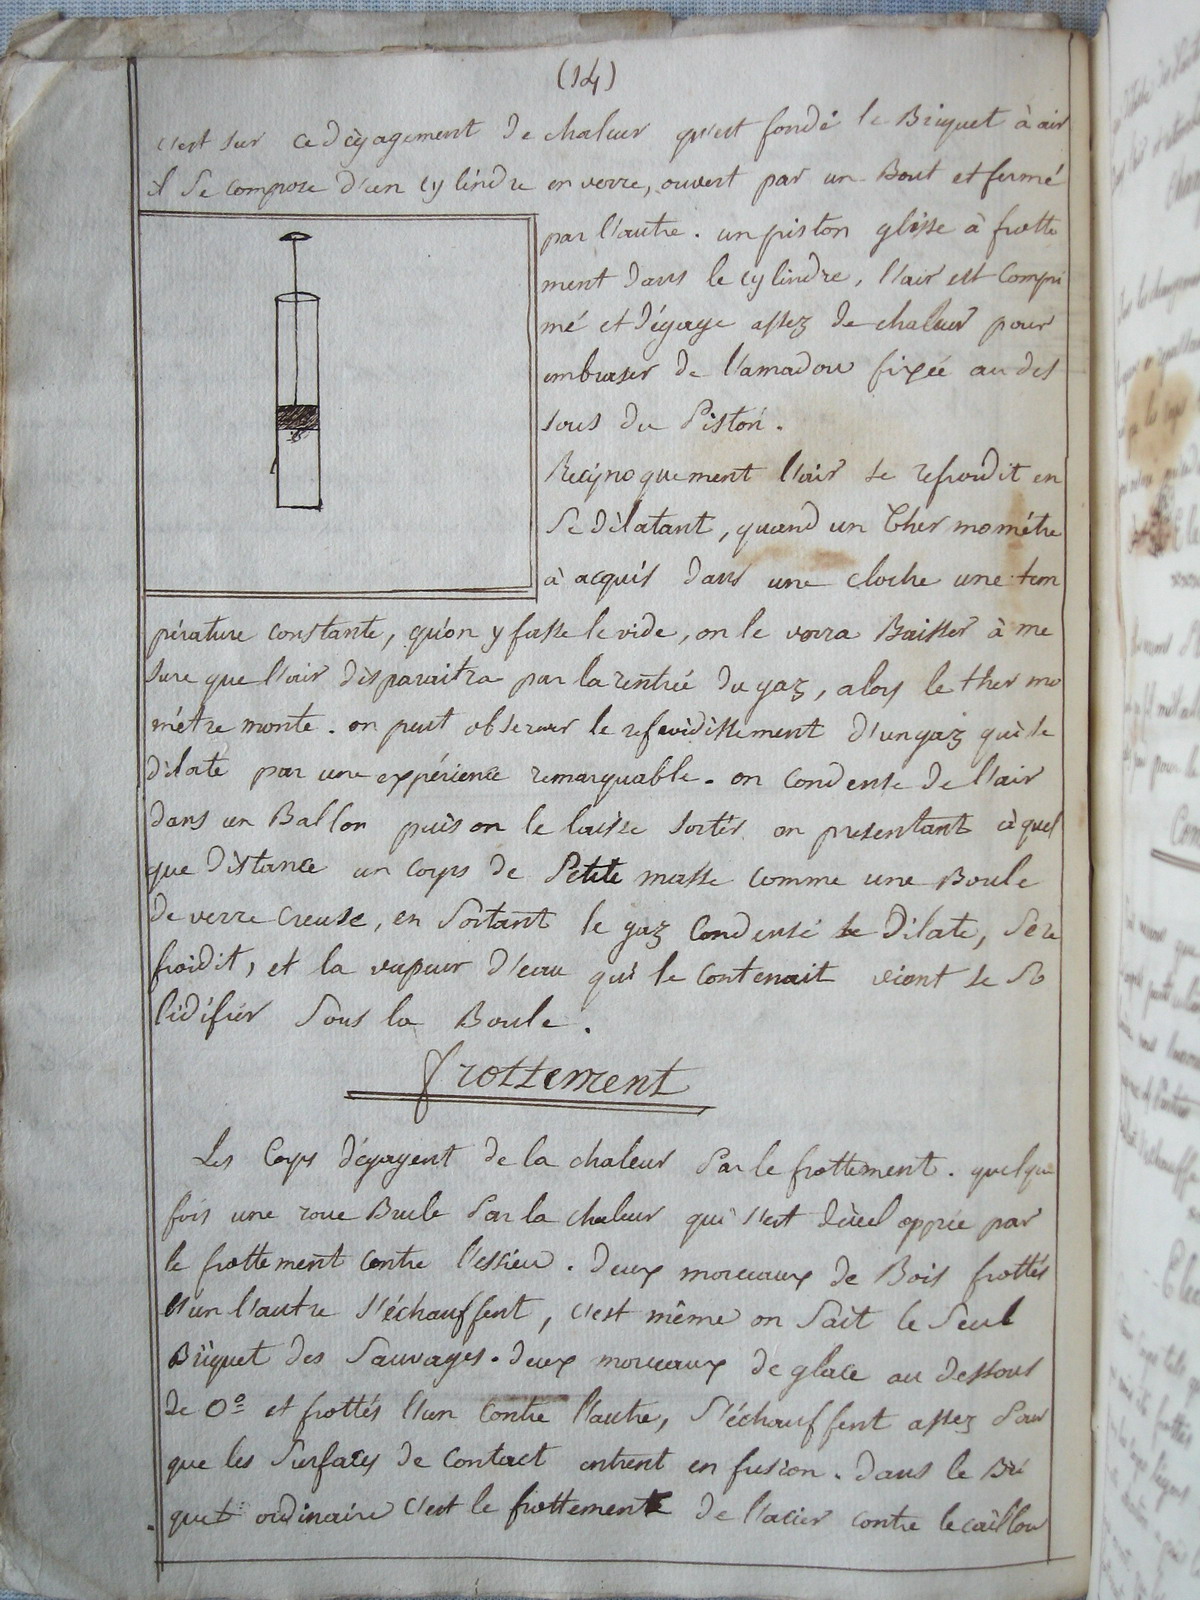 (14)
c'est sur ce dégagement de chaleur qu'est fondé le Briquet à air
il se compose d'un cylindre en verre, ouvert par un Bout et fermé
par l'autre. un piston glisse à frotte
ment dans le cylindre, l'air est Compri
mé et dégage assez de chaleur pour
embraser de l'amadou fixée au des
sous du Piston.
Reciproquement l'air se refroidit en
se dilatant, quand un Thermomètre
à acquis dans une cloche une tem
pérature constante, qu'on y fasse le vide, on le verra Baisser à me
sure que l'air disparaitra par la rentrée du gaz, alors le thermo
mètre monte. on peut observer le refroidissement d'un gaz qui se
dilate par une expérience remarquable. on condense de l'air
dans un Ballon puis on le laisse sortir en presentant à quel
que distance un corps de Petite masse comme une Boule
de verre Creuse, en Sortant le gaz Condensé se Dilate, se re
froidit, et la vapeur d'eau qui le Contenait vient se So
lidifier Sous la Boule.
frottement
Les Corps dégagent de la chaleur Par le frottement. quelque
fois une roue Brule Par la chaleur qui s'est dével oppée par
le frottement contre l'essieu. deux morceaux de Bois frottés
l'un l'autre s'échauffent, c'est même on Sait le Seul
Briquet des Sauvages. deux morceaux de glace au dessous
de 0° et frottés l'un Contre l'autre, s'échauffent assez Pour
que les Surfaces de Contact entrent en fusion. dans le Bri
quet ordinaire c'est le frottement de l'acier contre le caillou